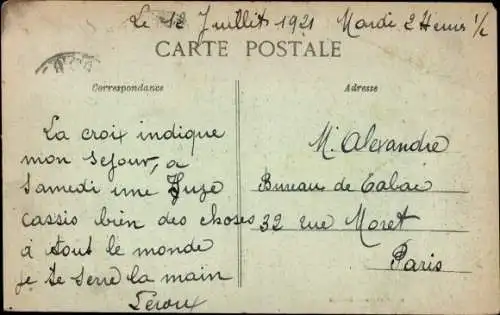 Le 12 Juillet 1921 Mardi 2 Heures 1/2
CARTE POSTALE
Correspondance
Adresse
La croix indique
mon sejour, a
Samedi une
cassis bien des choses
à tout le monde
je te serre la main
Léroux
M. Alexandre
Bureau de Tabac
32 rue Moret
Paris